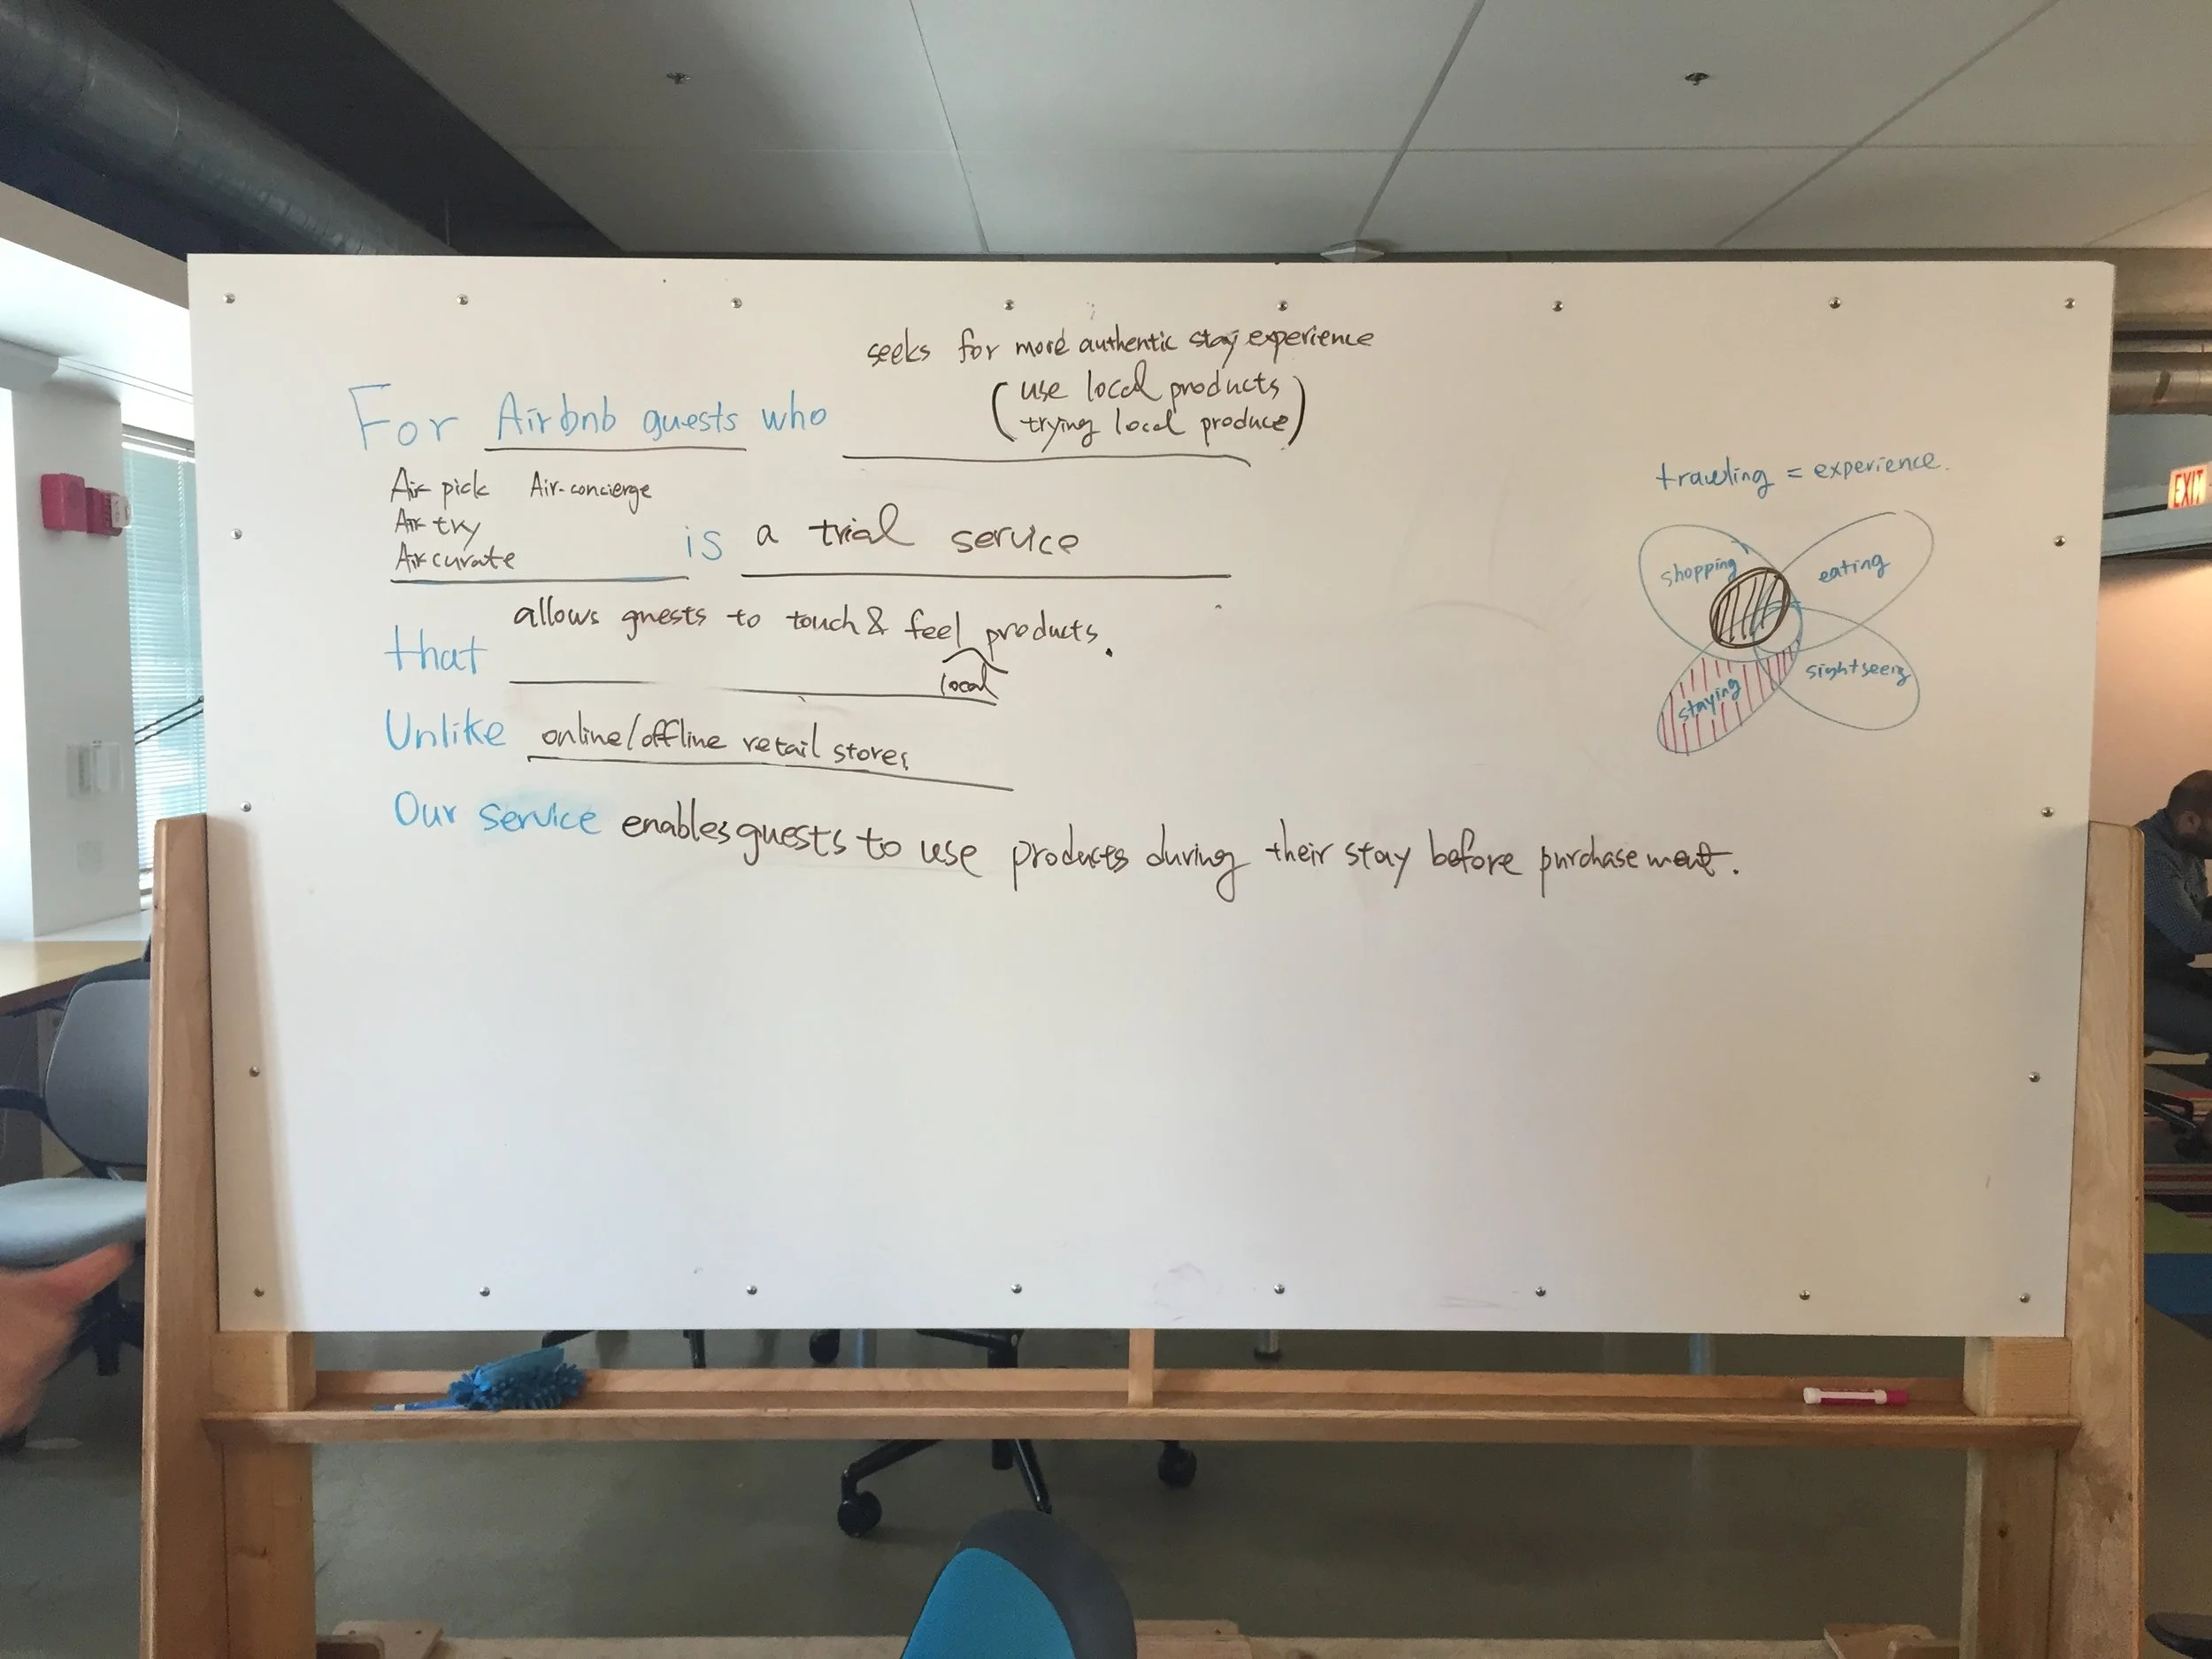 seeks for more authentic stay experience
(use local products
trying local produce)
For Airbnb guests who
Air pick Air-concierge
Air try
Air curate
is a trial service
that allows guests to touch & feel products.
local
Unlike online/offline retail stores
Our service enables guests to use products during their stay before purchasement.
traveling = experience.
shopping
eating
staying
sightseeing
EXIT